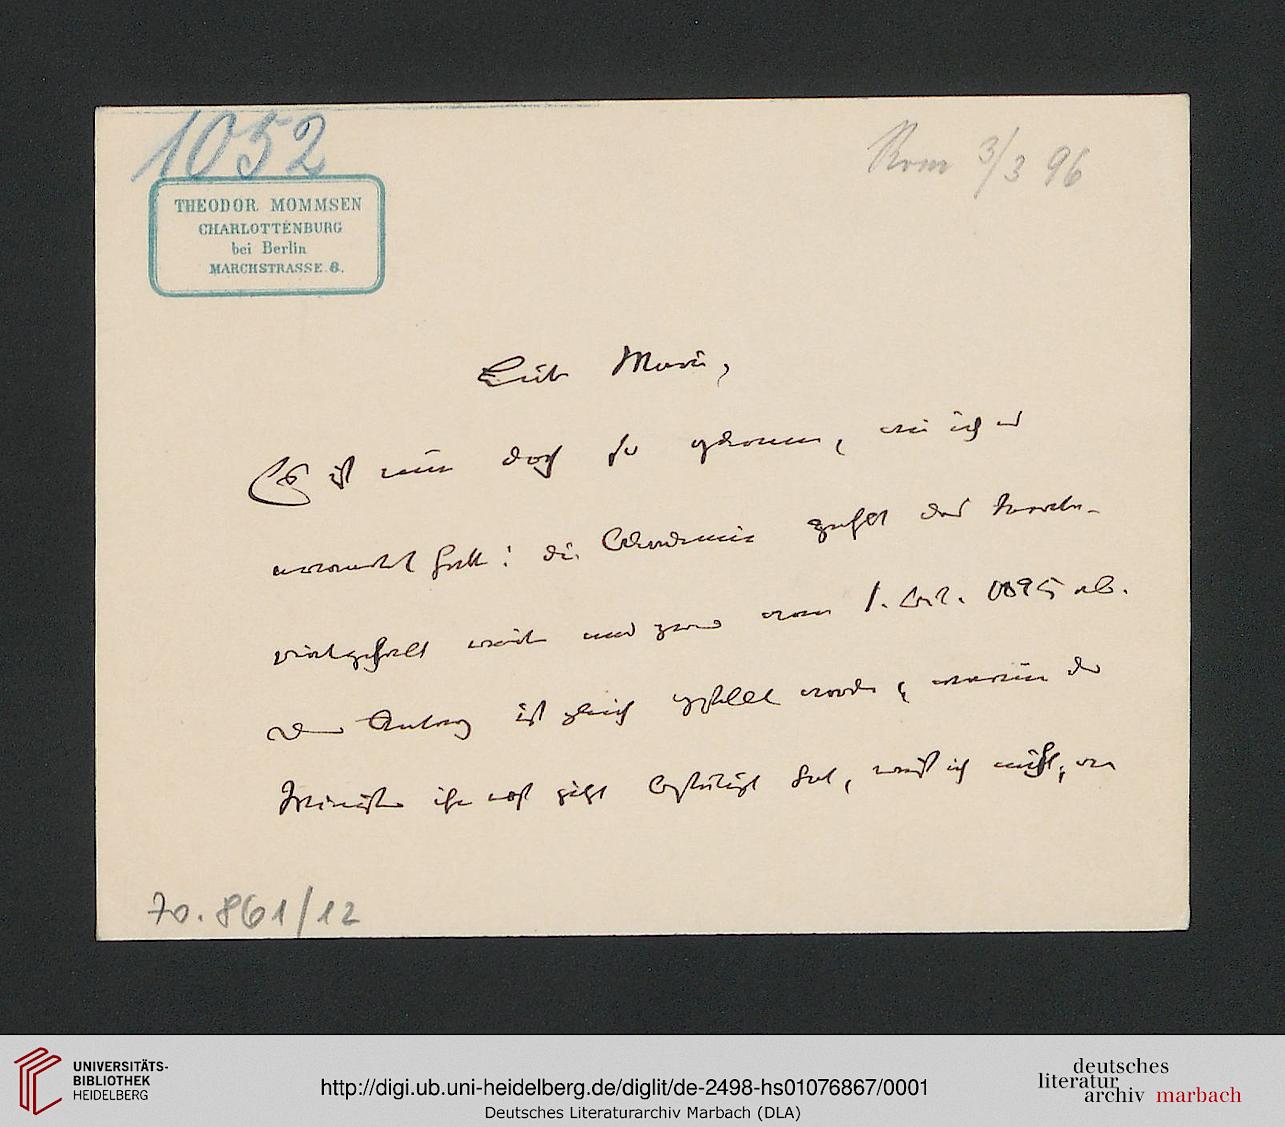 1052
Rom 3/3 96
THEODOR MOMMSEN
CHARLOTTENBURG
bei Berlin
MARCHSTRASSE 8.
Liebe Marie,
Es ist nun doch so gekommen, wie ich es
erwartet hatte: die Akademie zahlt das
weiter und zwar vom 1. Oct. 1895 ab.
Der Antrag ist gleich gestellt worden, warum der
Minister ihn erst jetzt bestätigt hat, weiß ich nicht,
70.861/12
UNIVERSITÄTS-
BIBLIOTHEK
HEIDELBERG
http://digi.ub.uni-heidelberg.de/diglit/de-2498-hs01076867/0001
Deutsches Literaturarchiv Marbach (DLA)
deutsches
literatur
archiv marbach